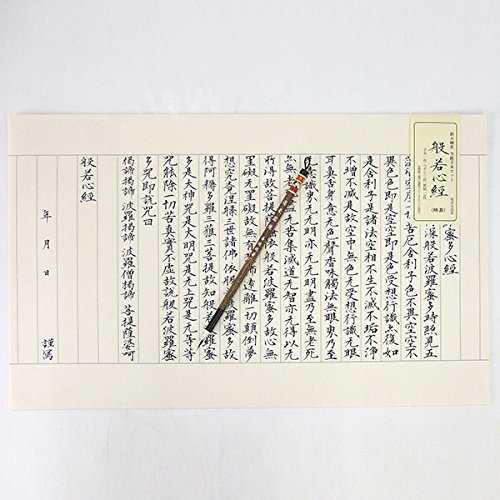 般若心経
蜜多心經
深般若波羅蜜多時照見五
苦厄舍利子色不異空空不
異色色即是空空即是色受想行識亦復如
是舍利子是諸法空相不生不滅不垢不淨
不增不減是故空中无色无受想行識无眼
耳鼻舌身意无色聲香味觸法无眼界乃至
意識界无无明亦无无明盡乃至无老死
亦无老死盡无苦集滅道无智亦无得以无
所得故菩提薩埵依般若波羅蜜多故心无
罣礙无罣礙故无有恐怖遠離一切顛倒夢
想究竟涅槃三世諸佛依般若波羅蜜多故
得阿耨多羅三藐三菩提故知般若波羅蜜
多是大神咒是大明咒是无上咒是无等等
咒能除一切苦真實不虛故說般若波羅蜜
多咒即說咒曰
揭諦揭諦 波羅揭諦 波羅僧揭諦 菩提薩婆訶
般若心經
年 月 日
謹寫